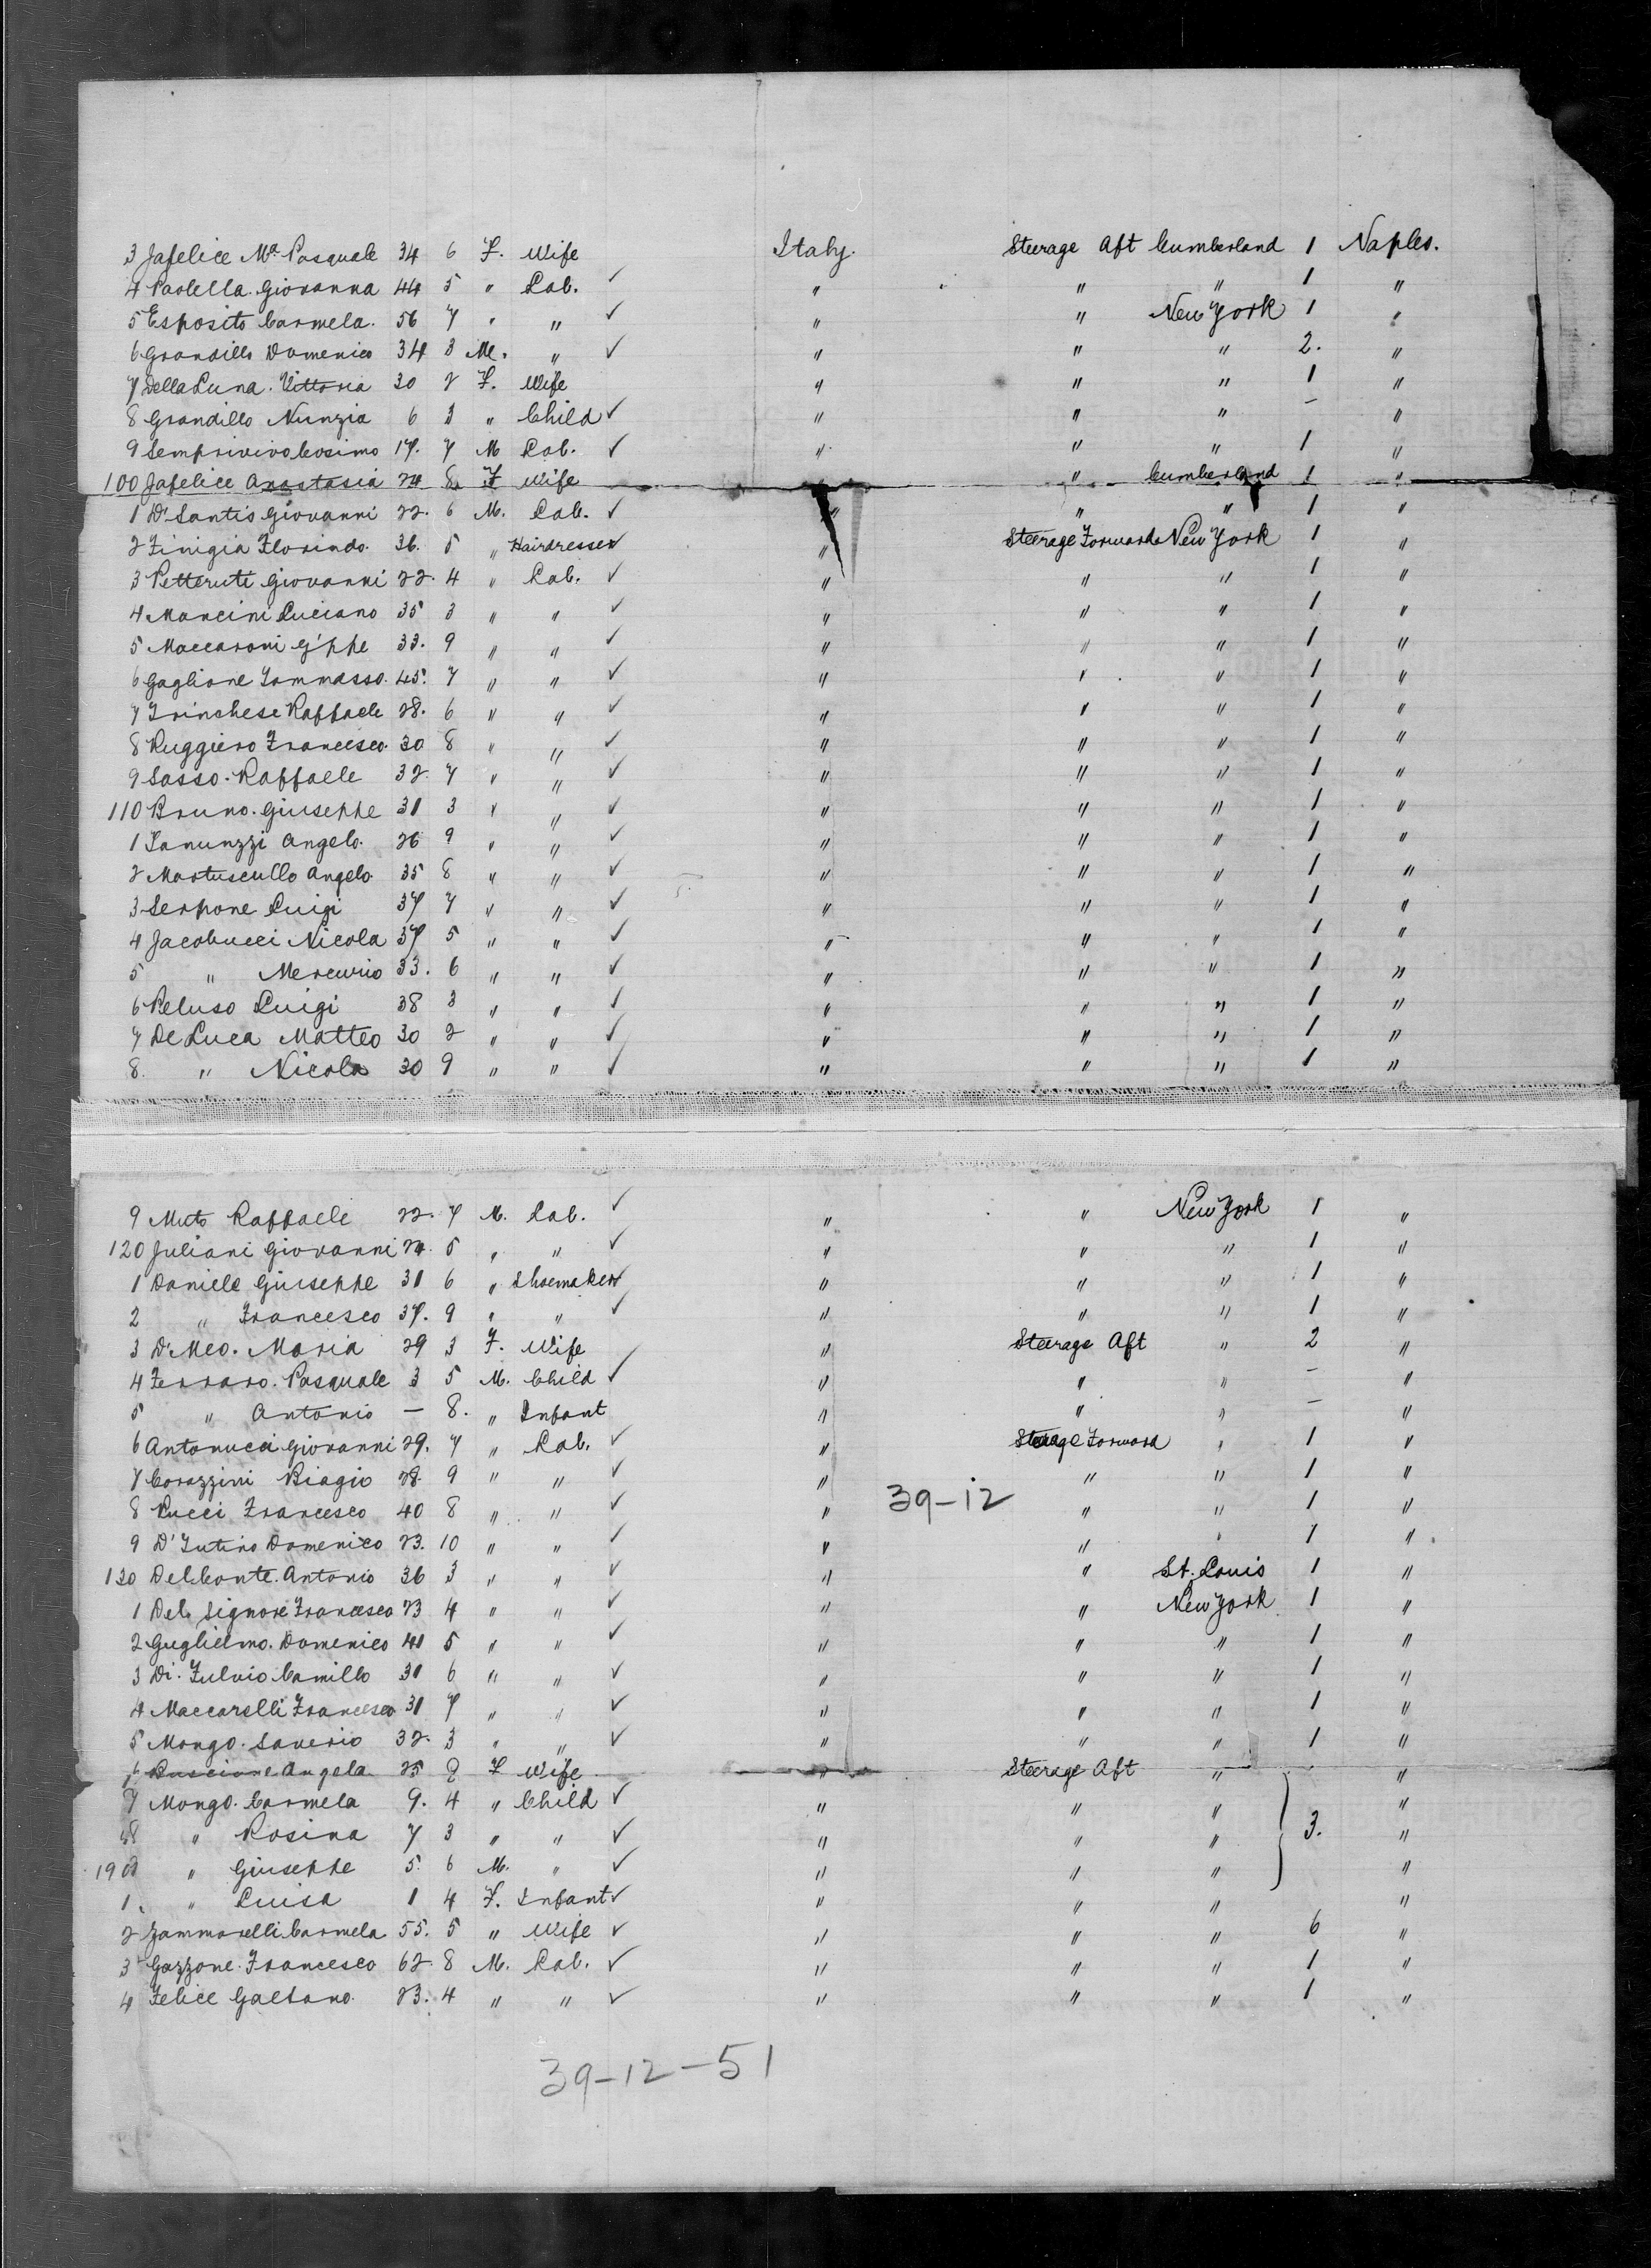 3 Jafelice Ma. Pasquale 34 6 F. Wife Italy. Steerage Aft Cumberland 1 Naples.
4 Paolella. Giovanna 44 5 " Lab. ✓ " " " 1 "
5 Esposito Carmela. 56 7 " " ✓ " " New York 1 "
6 Grandillo Domenico 34 3 M. " ✓ " " " 2. "
7 Della Luna. Vittoria 30 2 F. Wife " " " 1 "
8 Grandillo Nunzia 6 3 " Child ✓ " " " - "
9 Semprivivo Cosimo 17. 7 M Lab. ✓ " " " 1 "
100 Jafelice Anastasia 24 8 F Wife " " Cumberland 1 "
1 D'Santis Giovanni 22. 6 M. Lab. ✓ " " " 1 "
2 Finigia Florindo. 36. 5 " Hairdresser ✓ " Steerage Forward New York 1 "
3 Petteruti Giovanni 22. 4 " Lab. ✓ " " " 1 "
4 Mancini Luciano 35 3 " " ✓ " " " 1 "
5 Maccaroni G'ppe 33. 9 " " ✓ " " " 1 "
6 Gaglione Tommasso. 45. 7 " " ✓ " " " 1 "
7 Trinchese Raffaele 28. 6 " " ✓ " " " 1 "
8 Ruggiero Francesco. 30 8 " " ✓ " " " 1 "
9 Sasso. Raffaele 32. 7 " " ✓ " " " 1 "
110 Bruno. Giuseppe 31 3 " " ✓ " " " 1 "
1 Ianunzzi Angelo. 26 9 " " ✓ " " " 1 "
2 Martuscullo Angelo. 35 8 " " ✓ " " " 1 "
3 Serpone Luigi 37 7 " " ✓ " " " 1 "
4 Jacobucci Nicola 37 5 " " ✓ " " " 1 "
5 " Mercurio 33. 6 " " ✓ " " " 1 "
6 Peluso Luigi 38 3 " " ✓ " " " 1 "
7 De Luca Matteo 30 2 " " ✓ " " " 1 "
8. " Nicola 30 9 " " ✓ " " " 1 "
9 Muto Raffaele 22. 7 M. Lab. ✓ " " New York 1 "
120 Juliani Giovanni 24. 5 " " ✓ " " " 1 "
1 Daniele Giuseppe 31 6 " Shoemaker ✓ " " " 1 "
2 " Francesco 37. 9 " " ✓ " " " 1 "
3 D'Meo. Maria 29 3 F. Wife " Steerage Aft " 2 "
4 Ferraro. Pasquale 3 5 M. Child ✓ " " " - "
5 " Antonio - 8. " Infant " " " - "
6 Antonucci Giovanni 29. 7 " Lab. ✓ " Steerage Forward " 1 "
7 Corazzini Biagio 28. 9 " " ✓ " " " 1 "
39-12
8 Pucci Francesco 40 8 " " ✓ " " " 1 "
9 D'Iutino Domenico 23. 10 " " ✓ " " " 1 "
130 Del Conte. Antonio 36 3 " " ✓ " " St. Louis 1 "
1 Del Signore Francesco 23 4 " " ✓ " " New York 1 "
2 Guglielmo. Domenico 41 5 " " ✓ " " " 1 "
3 Di. Fulvio Camillo 31 6 " " ✓ " " " 1 "
4 Maccarelli Francesco 31 7 " " ✓ " " " 1 "
5 Mongo. Saverio 32. 3 " " ✓ " " " 1 "
6 Angela 25 2 F Wife " Steerage Aft " "
7 Mongo. Carmela 9. 4 " Child ✓ " " " "
8 " Rosina 7 3 " " ✓ " " " 3. "
" Giuseppe 5. 6 M. " ✓ " " " "
1. " Luisa 1 4 F. Infant ✓ " " " "
2 Zammarelli Carmela 55. 5 " Wife ✓ " " " 6 "
3 Gazzone. Francesco 62. 8 M. Lab. ✓ " " " 1 "
4 Felice Gaetano. 23. 4 " " ✓ " " " 1 "
39-12-51